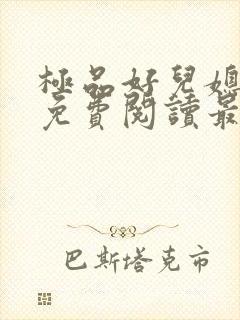 極品好兒媳
免費閱讀最
巴斯塔克市